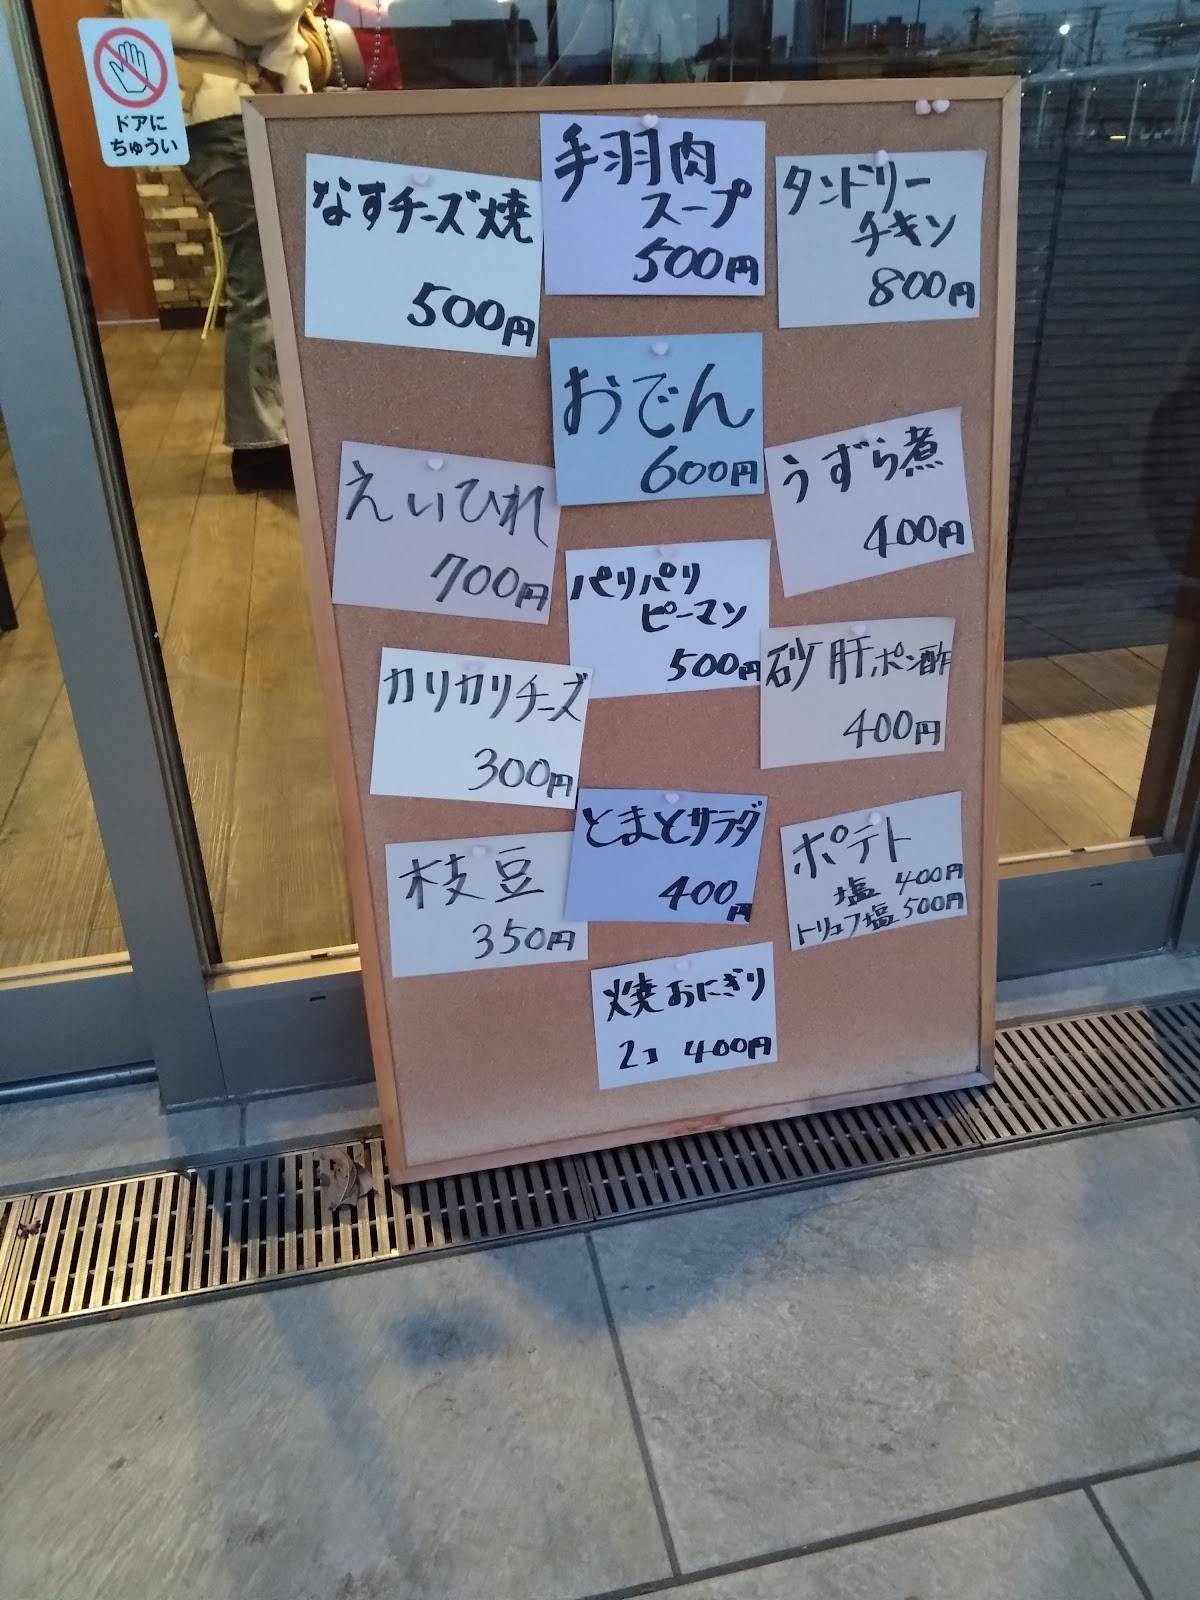 ドアに
ちゅうい
なすチーズ焼
500円
手羽肉
スープ
500円
タンドリー
チキン
800円
おでん
600円
えいひれ
700円
うずら煮
400円
パリパリ
ピーマン
500円
カリカリチーズ
300円
砂肝ポン酢
400円
とまとサラダ
400円
枝豆
350円
ポテト
塩 400円
トリュフ塩 500円
焼おにぎり
2コ 400円